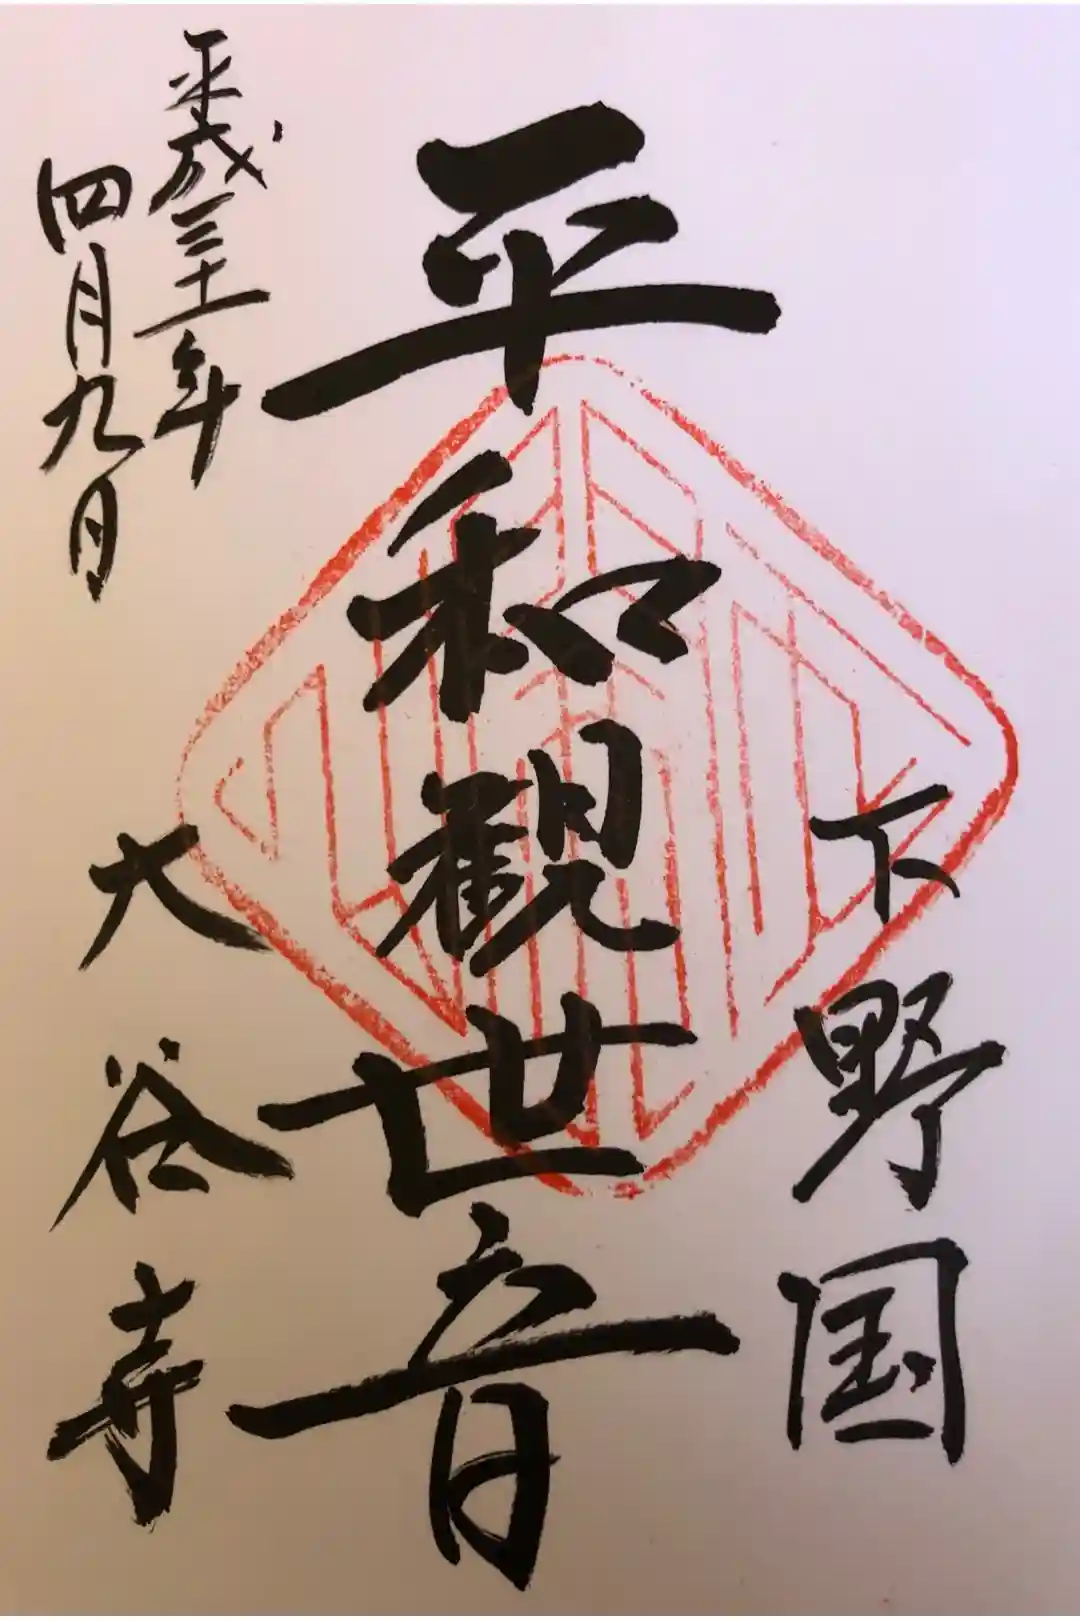 下野国
平和観世音
平成三十一年
四月九日
大谷寺